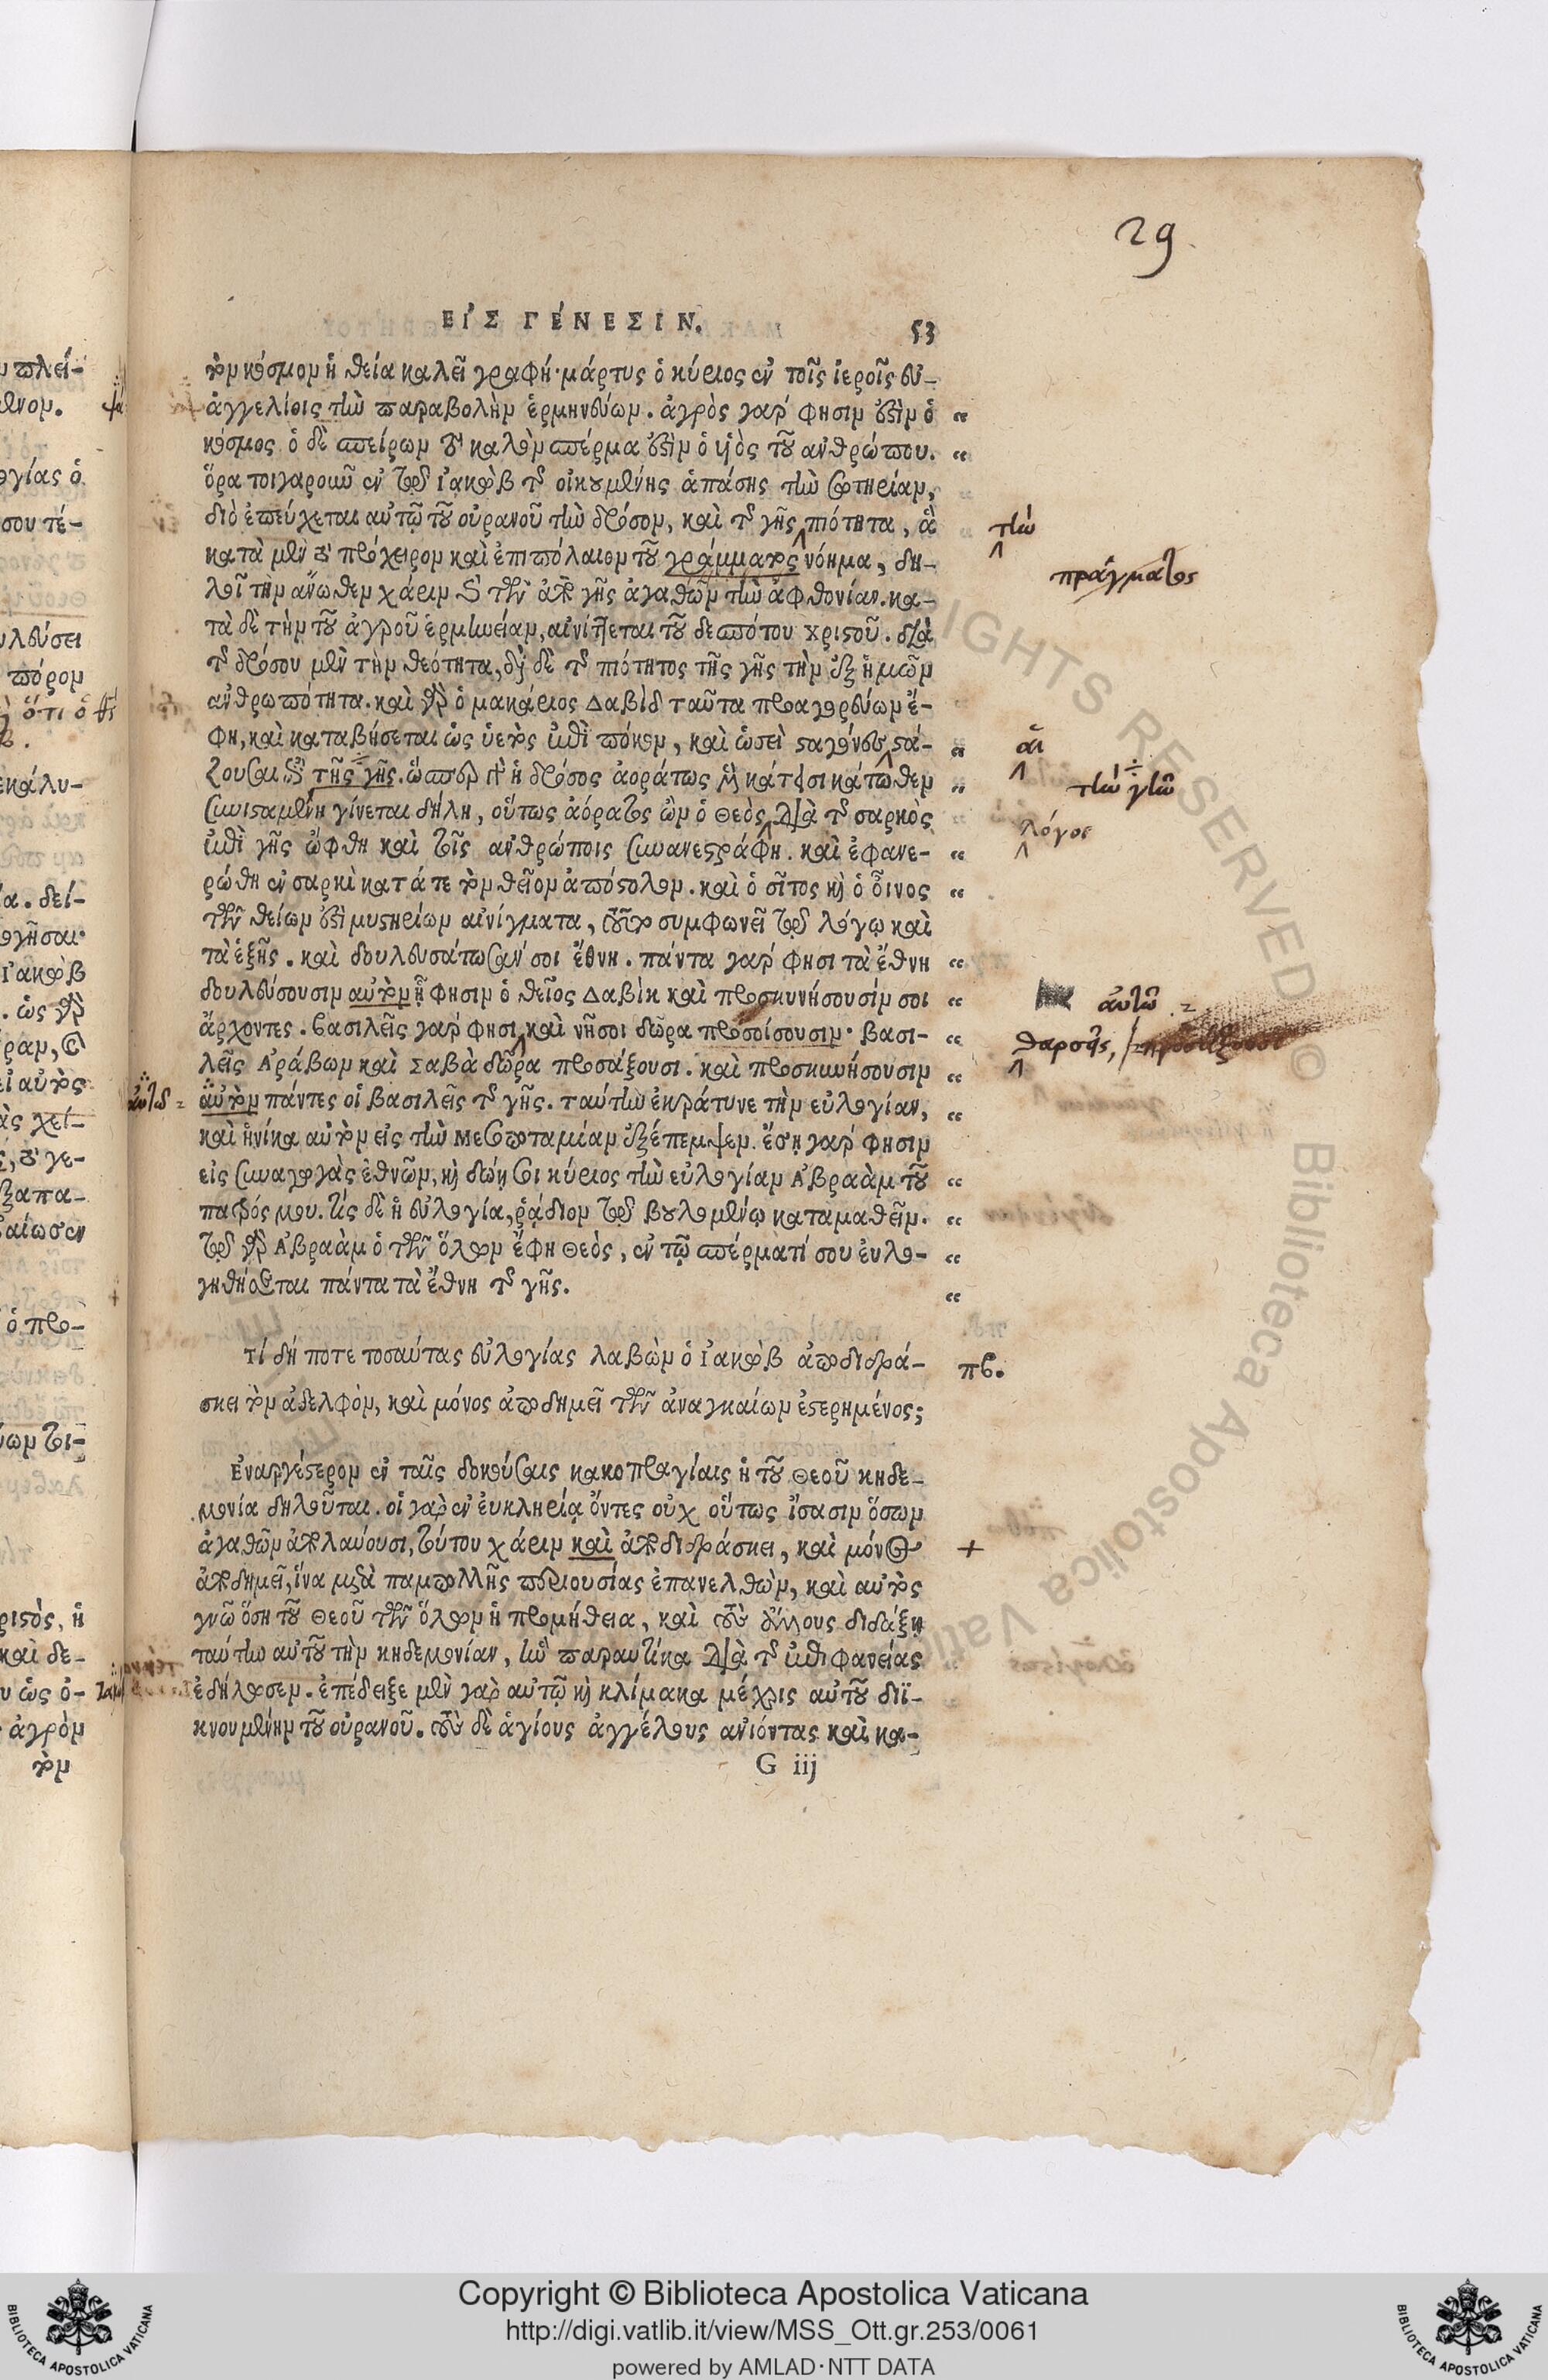 29
ΕΙ᾿Σ ΓΕ´ΝΕΣΙΝ.
53
τὸν κόσμον ἡ θεία καλεῖ γραφή· μάρτυς ὁ κύριος ἐν τοῖς ἱεροῖς εὐ-
αγγελίοις τὴν παραβολὴν ἑρμηνεύων. ἀγρὸς γάρ φησιν ἐστὶν ὁ
κόσμος, ὁ δὲ σπείρων τὸ καλὸν σπέρμα ἐστὶν ὁ υἱὸς τοῦ ἀνθρώπου.
ὅρα τοιγαροῦν ἐν τῷ Ἰακὼβ τῆς οἰκουμένης ἁπάσης τὴν σωτηρίαν,
διὸ ἐπεύχεται αὐτῷ τοῦ οὐρανοῦ τὴν δρόσον, καὶ τῆς γῆς πιότητα, ἃ
τὴν
κατὰ μὲν τὸ πρόχειρον καὶ ἐπιπόλαιον τοῦ γράμματος νόημα, δη-
πράγματος
λοῖ τὴν ἄνωθεν χάριν καὶ τῶν ἀπὸ γῆς ἀγαθῶν τὴν ἀφθονίαν. κα-
τὰ δὲ τὴν τοῦ ἀγροῦ ἑρμηνείαν, αἰνίττεται τοῦ δεσπότου χριστοῦ. διὰ
τῆς δρόσου μὲν τὴν θεότητα, διὰ δὲ τῆς πιότητος τῆς γῆς τὴν ἐξ ἡμῶν
ἀνθρωπότητα. καὶ γὰρ ὁ μακάριος Δαβὶδ ταῦτα προαγορεύων ἔ-
φη, καὶ καταβήσεται ὡς ὑετὸς ἐπὶ πόκον, καὶ ὡσεὶ σταγόνες στά-
αἱ
ζουσαι ἐπὶ τῆς γῆς. ὥσπερ γὰρ ἡ δρόσος ἀοράτως μὲν κάτεισι κάτωθεν
τὴν γῆν
συνισταμένη γίνεται δήλη, οὕτως ἀόρατος ὢν ὁ θεὸς διὰ τῆς σαρκὸς
λόγος
ἐπὶ γῆς ὤφθη καὶ τοῖς ἀνθρώποις συνανεστράφη. καὶ ἐφανε-
ρώθη ἐν σαρκὶ κατά τε τὸν θεῖον ἀπόστολον. καὶ ὁ σῖτος καὶ ὁ οἶνος
τῶν θείων ἐστὶ μυστηρίων αἰνίγματα, τούτῳ συμφωνεῖ τῷ λόγῳ καὶ
τὰ ἑξῆς. καὶ δουλευσάτωσάν σοι ἔθνη. πάντα γάρ φησι τὰ ἔθνη
δουλεύσουσιν αὐτὸν ᾗ φησιν ὁ θεῖος Δαβὶδ καὶ προσκυνήσουσίν σοι
αὐτῷ
ἄρχοντες. βασιλεῖς γάρ φησι καὶ νῆσοι δῶρα προσοίσουσιν· βασι-
θαρσῆς,
λεῖς Ἀράβων καὶ Σαβὰ δῶρα προσάξουσι. καὶ προσκυνήσουσιν
αὐτὸν πάντες οἱ βασιλεῖς τῆς γῆς. ταύτην ἐκράτυνε τὴν εὐλογίαν,
αὐτῷ
καὶ ἡνίκα αὐτὸν εἰς τὴν Μεσοποταμίαν ἐξέπεμψεν. ἔσῃ γάρ φησιν
εἰς συναγωγὰς ἐθνῶν, καὶ δώῃ σοι κύριος τὴν εὐλογίαν Ἀβραὰμ τοῦ
πατρός μου. τίς δὲ ἡ εὐλογία, ῥᾴδιον τῷ βουλομένῳ καταμαθεῖν.
τῷ γὰρ Ἀβραὰμ ὁ τῶν ὅλων ἔφη θεὸς, ἐν τῷ σπέρματί σου ἐνλο-
γηθήσεται πάντα τὰ ἔθνη τῆς γῆς.
Τί δή ποτε τοσαύτας εὐλογίας λαβὼν ὁ Ἰακὼβ ἀποδιδρά-
πβ.
σκει τὸν ἀδελφὸν, καὶ μόνος ἀποδημεῖ τῶν ἀναγκαίων ἐστερημένος;
Ἐναργέστερον ἐν ταῖς δοκούσαις κακοπραγίαις ἡ τοῦ θεοῦ κηδε-
μονία δηλοῦται. οἱ γὰρ ἐν εὐκληρίᾳ ὄντες οὐχ οὕτως ἴσασιν ὅσων
ἀγαθῶν ἀπολαύουσι, τούτου χάριν καὶ ἀποδιδράσκει, καὶ μόνος
+
ἀποδημεῖ, ἵνα μετὰ παμπόλλης περιουσίας ἐπανελθὼν, καὶ αὐτὸς
γνῷ ὅση τοῦ θεοῦ τῶν ὅλων ἡ προμήθεια, καὶ τοὺς ἄλλους διδάξῃ
ταύτην αὐτοῦ τὴν κηδεμονίαν, ἣν παραυτίκα διὰ τῆς ἐπιφανείας
ἐδήλωσεν. ἐπέδειξε μὲν γὰρ αὐτῷ καὶ κλίμακα μέχρις αὐτοῦ διϊ-
κνουμένην τοῦ οὐρανοῦ. τοὺς δὲ ἁγίους ἀγγέλους ἀνιόντας καὶ κα-
G iij
Copyright © Biblioteca Apostolica Vaticana
http://digi.vatlib.it/view/MSS_Ott.gr.253/0061
powered by AMLAD·NTT DATA